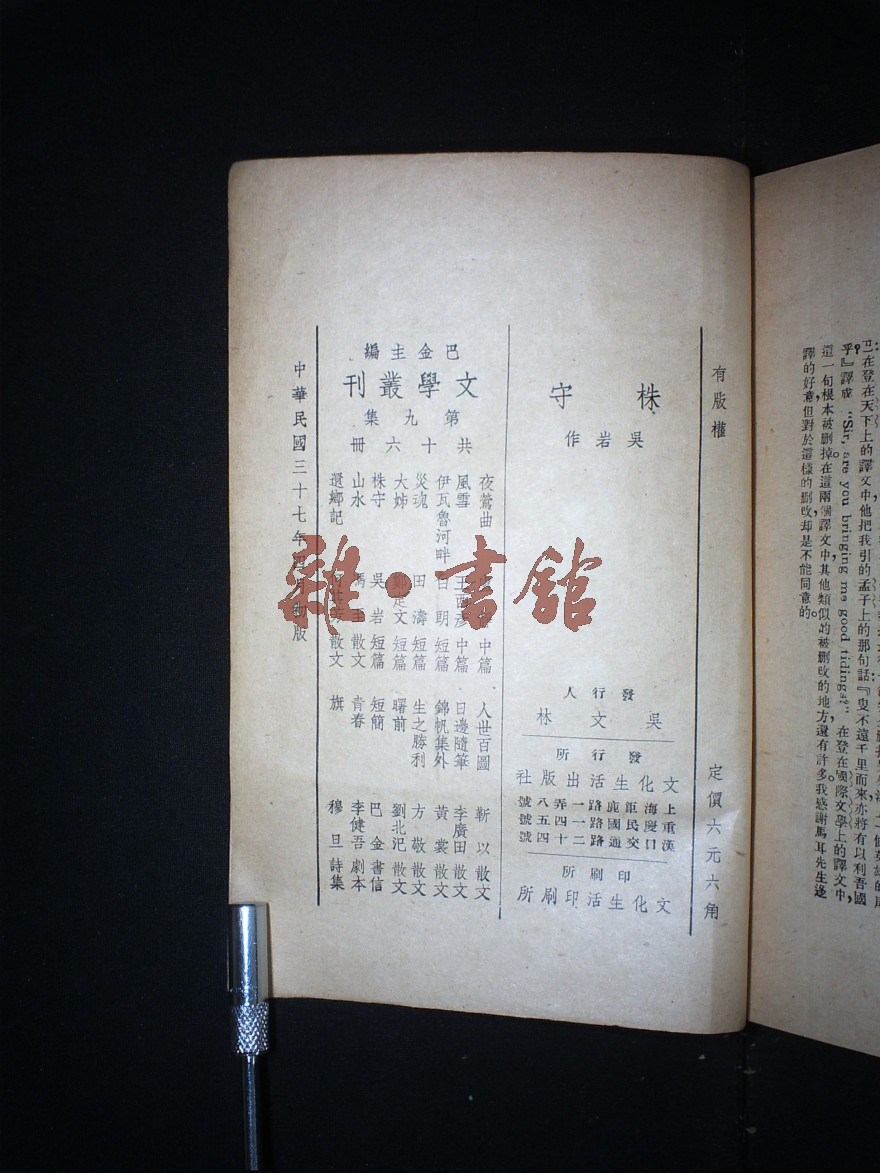 在登在天下上的譯文中他把我引的孟子上的那句話『叟不遠千里而來亦將有以利吾國
乎』譯成 “Sir, are you bringing me good tidings?” 在登在國際文學上的譯文中,
這一句根本被刪掉。在這兩個譯文中,其他類似的被刪改的地方,還有許多。我感謝馬耳先生
譯的好意,但對於這樣的刪改却是不能同意的。
有版權
定價六元六角
株守
吳岩作
發行人
吳文林
發行所
文化生活出版社
上海鉅鹿路一弄八號
重慶民國路一四五號
漢口交通路二十四號
印刷所
文化生活印刷所
巴金主編
文學叢刊
第九集
共十六冊
夜鶯曲 中篇
風雪 王西彥 中篇
伊瓦魯河畔 白朗 短篇
災魂 田濤 短篇
大姊 鄭定文 短篇
株守 吳岩 短篇
山水 馮至 散文
還鄉記 何其芳 散文
人世百圖 靳以 散文
日邊隨筆 李廣田 散文
錦帆集外 黃裳 散文
生之勝利 方敬 散文
曙前 劉北汜 散文
短簡 巴金 書信
青春 李健吾 劇本
旗 穆旦 詩集
中華民國三十七年四月初版
雜·書館